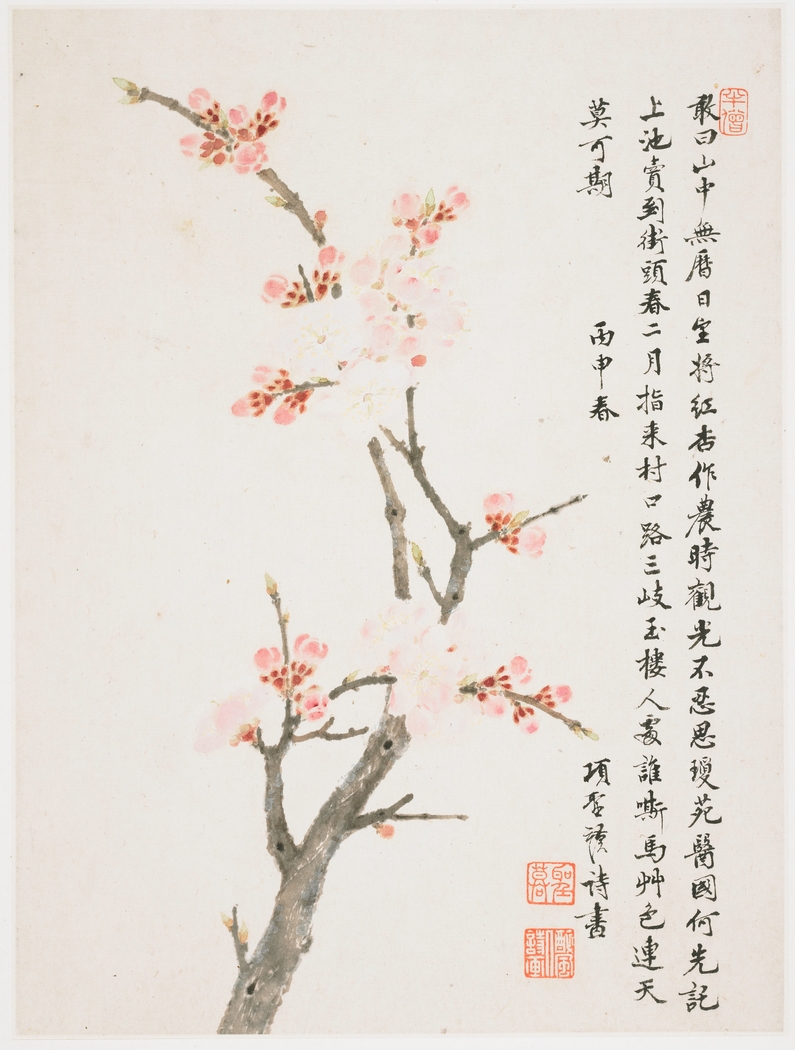 半僧
敢曰山中無曆日將紅杏作農時觀光不忍思瓊苑醫國何先託
上池賣到街頭春二月指来村口路三岐玉樓人處誰嘶馬艸色連天
莫可期
丙申春
項聖謨詩書